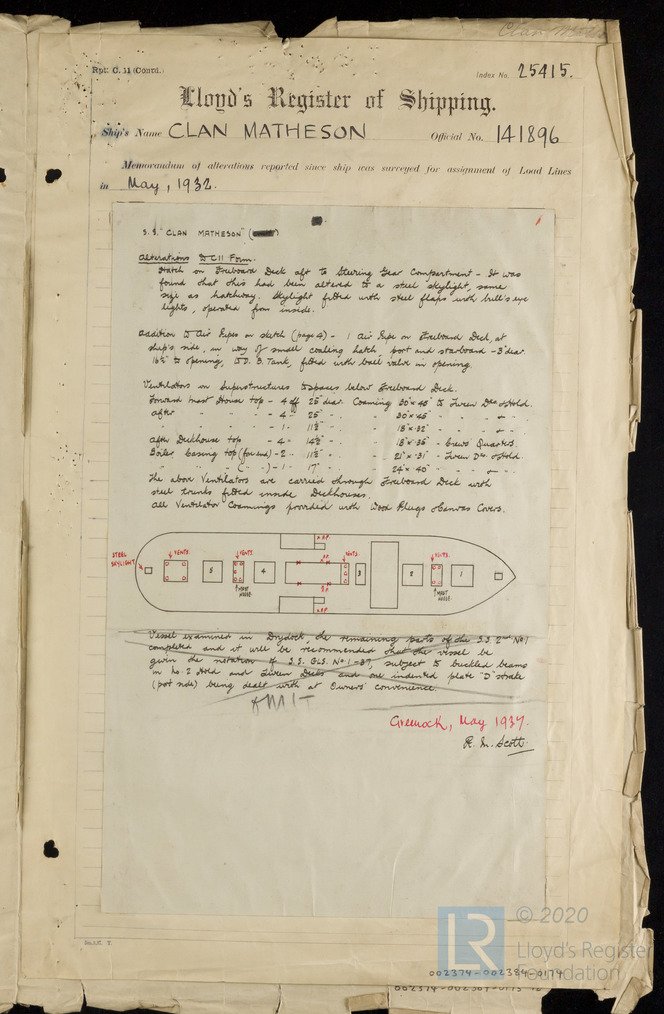 Rpt. C. 11 (Contd.)
Index No. 25415.
Lloyd's Register of Shipping.
Ship's Name CLAN MATHESON Official No. 141896
Memorandum of alterations reported since ship was surveyed for assignment of Load Lines
in May, 1932.
S.S. "CLAN MATHESON"
Alterations to C11 Form.
Hatch on Freeboard Deck aft to Steering Gear Compartment - It was
found that this had been altered to a steel skylight, same
size as hatchway. Skylight fitted with steel flaps with bull's eye
lights, operated from inside.
Addition to Air Pipes on sketch (page 4) - 1 Air Pipe on Freeboard Deck, at
ship's side, in way of small coaling hatch, port and starboard - 3" diar.
16½" to opening, to D.B. Tank, fitted with ball valve in opening.
Ventilators on Superstructures to spaces below Freeboard Deck.
Forward Mast House top - 4 off 25" diar. Coaming 30" x 45" to Tween Dks & Hold.
After - - - - 4 - 25" - - 30" x 45" - - - -
- - - - 1 - 11½" - - 18" x 32" - - - -
After Deckhouse top - 4 - 14½" - - 18" x 36" - Crews Quarters.
Boiler Casing top (for end) - 2 - 11½" - - 21" x 31" - Tween Dks. & Hold.
- - (- -) - 1 - 17" - - 24" x 40" - - - -
The above Ventilators are carried through Freeboard Deck with
steel trunks fitted inside Deckhouses.
All Ventilator Coamings provided with Wood Plugs & Canvas Covers.
STEEL SKYLIGHT
VENTS.
VENTS.
VENTS.
VENTS.
A.P.
A.P.
5
4
3
2
1
MAST HOUSE.
MAST HOUSE.
Vessel examined in Drydock, the remaining parts of the S.S. 2nd No 1
completed and it will be recommended that the vessel be
given the notation of S.S. GLS. No 1 - 37, subject to buckled beams
in No. 2 Hold and Tween Decks and one indented plate "D" strake
(port side) being dealt with at Owners' convenience.
Greenock, May 1937.
R. M. Scott.
© 2020
LR
Lloyd's Register
Foundation
002374-002384-0174